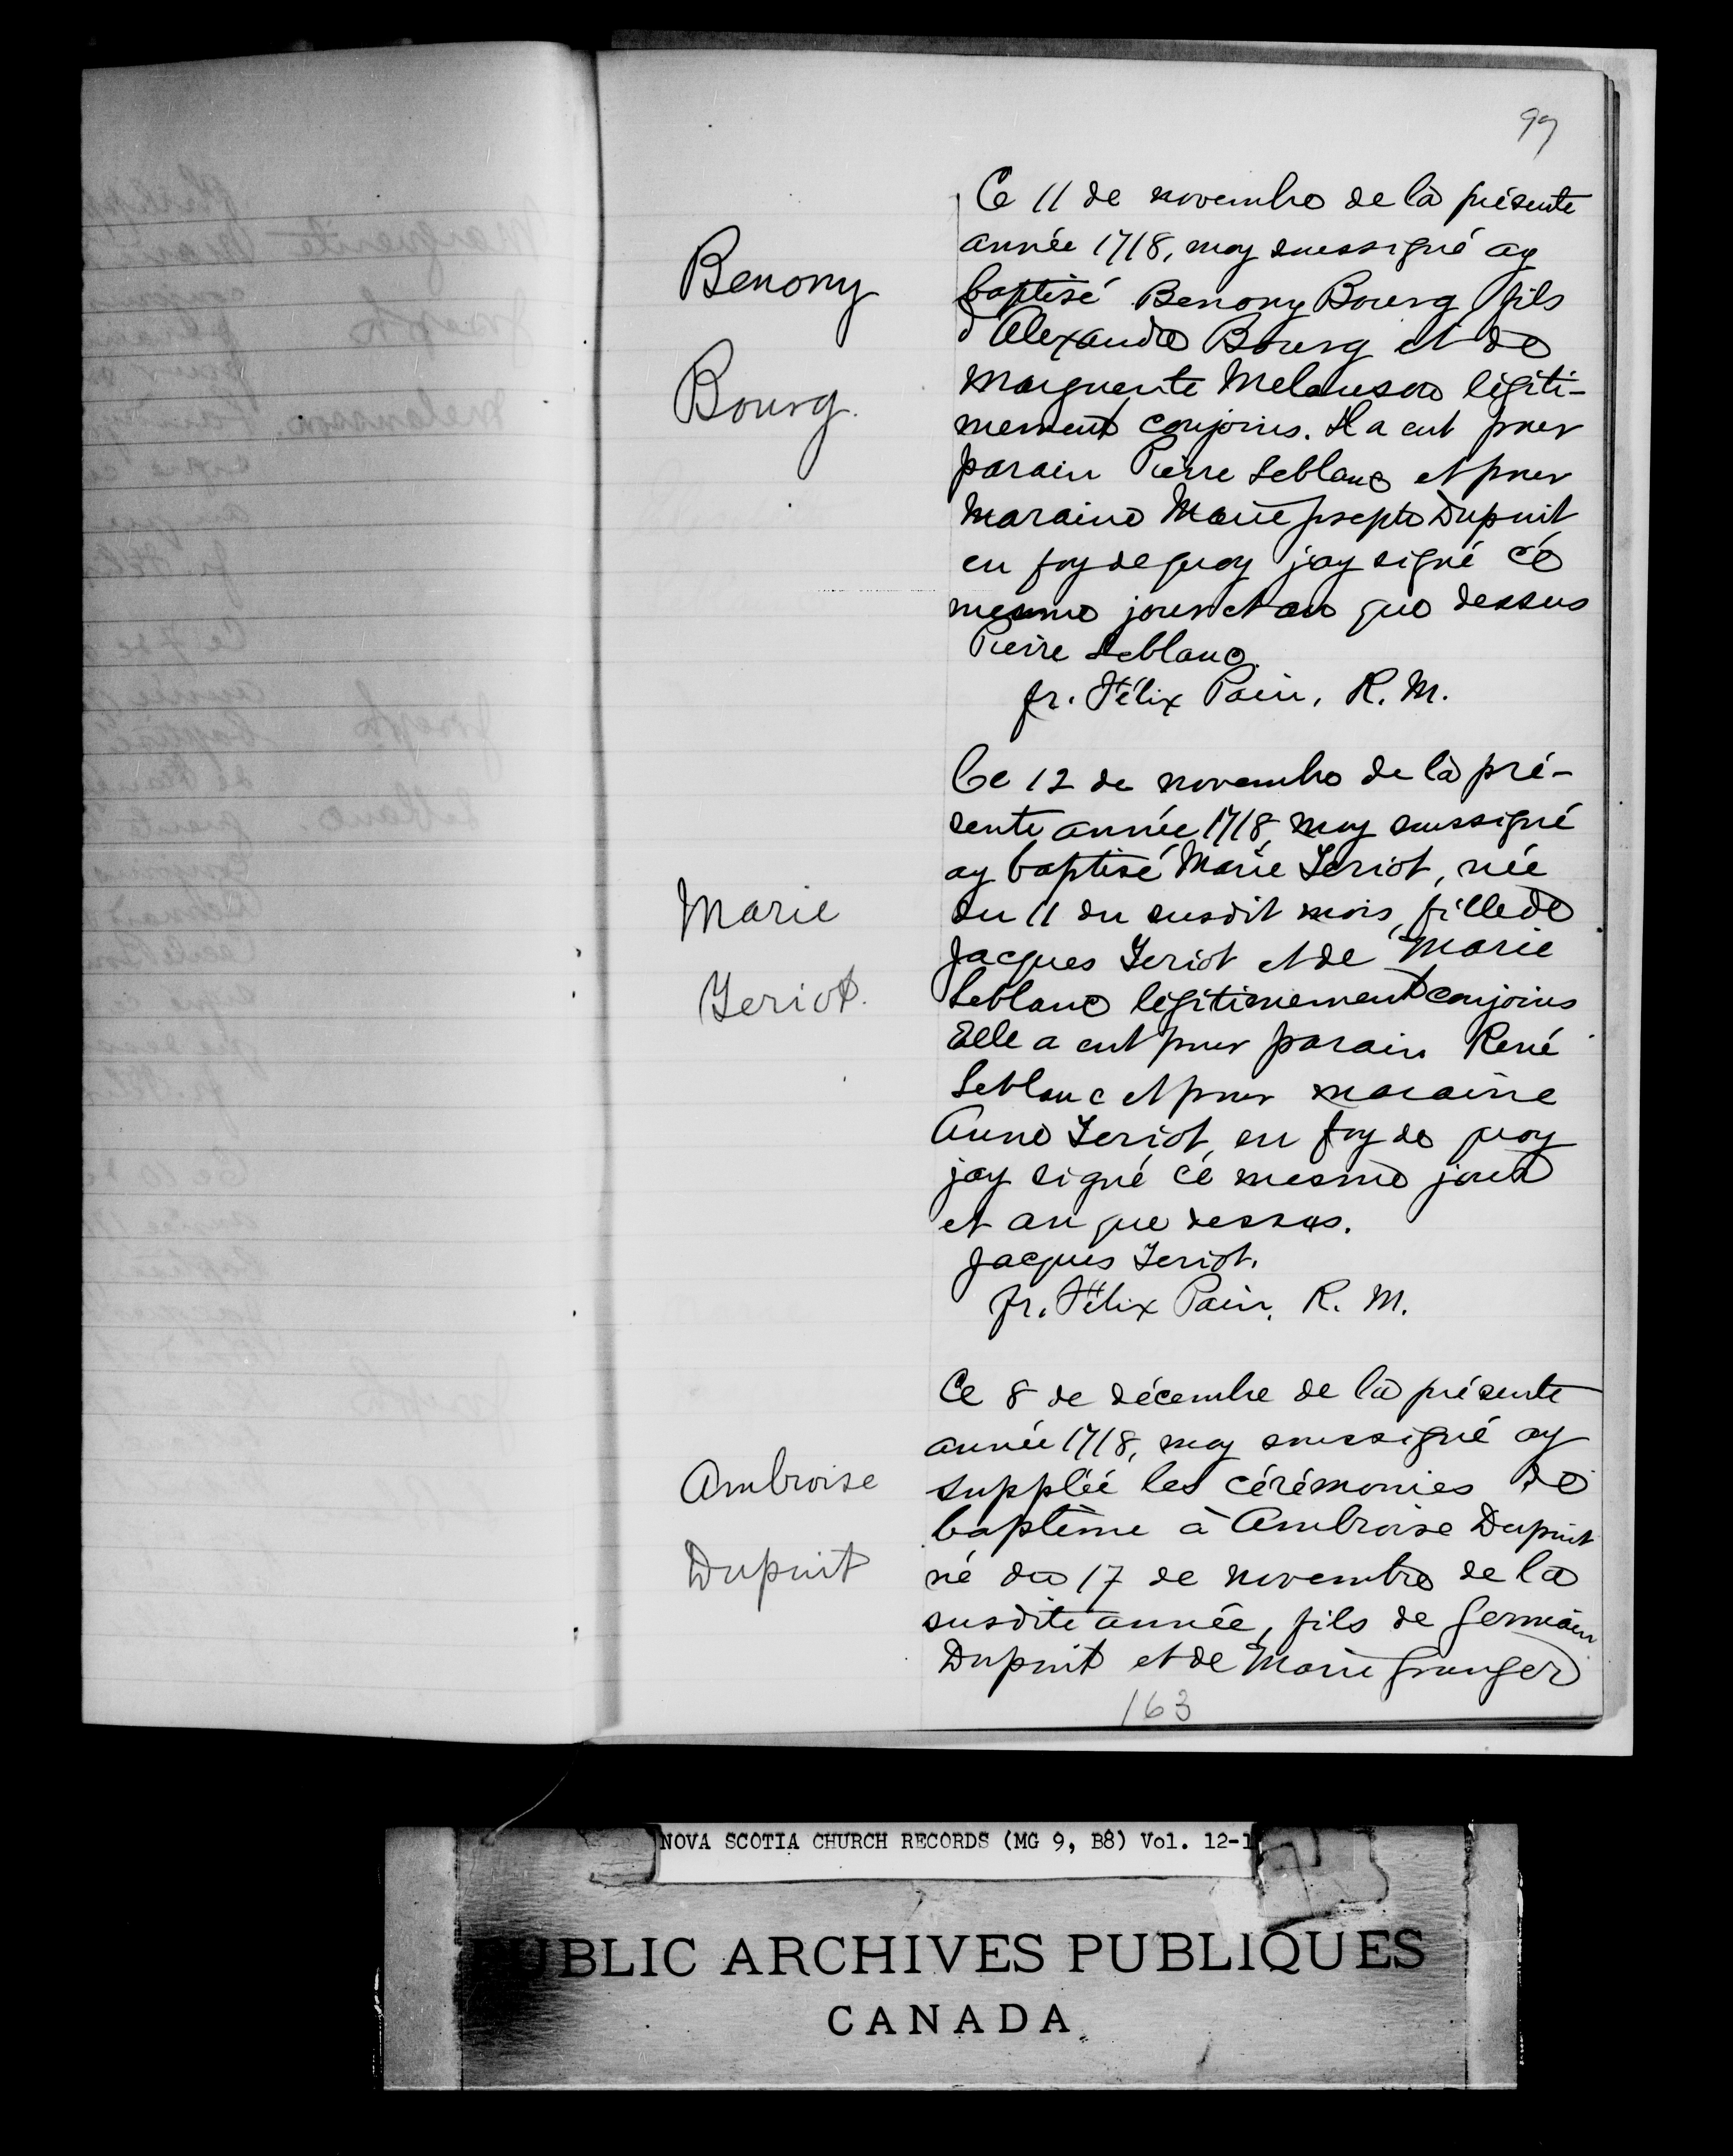 99
Ce 11 de novembre de la présente
année 1718, moy soussigné ay
Benony
baptisé Benony Bourg fils
d'Alexandre Bourg et de
Bourg.
Marguerite Melanson légiti-
mement conjoins. Il a eut pour
parain Pierre Leblanc et pour
maraine Marie Josepte Dupuit,
en foy de quoy j'ay signé ce
mesme jour et an que dessus
Pierre Leblanc.
fr. Félix Pain, R. M.
Ce 12 de novembre de la pré-
sente année 1718, moy soussigné
ay baptisé Marie Teriot, née
Marie
du 11 du susdit mois, fille de
Jacques Teriot et de Marie
Teriot.
Leblanc légitimement conjoins
Elle a eut pour parain René
Leblanc et pour maraine
Anne Teriot, en foy de quoy
jay signé cé mesme jour
et an que dessus.
Jacques Teriot.
fr. Félix Pain, R. M.
Ce 8 de décembre de la présente
année 1718, moy soussigné ay
Ambroise
supplée les cérémonies de
baptême à Ambroise Dupuit
Dupuit
né du 17 de novembre de la
susdite année, fils de Germain
Dupuit et de Marie Granger
163
NOVA SCOTIA CHURCH RECORDS (MG 9, B8) Vol. 12-1
PUBLIC ARCHIVES PUBLIQUES
CANADA